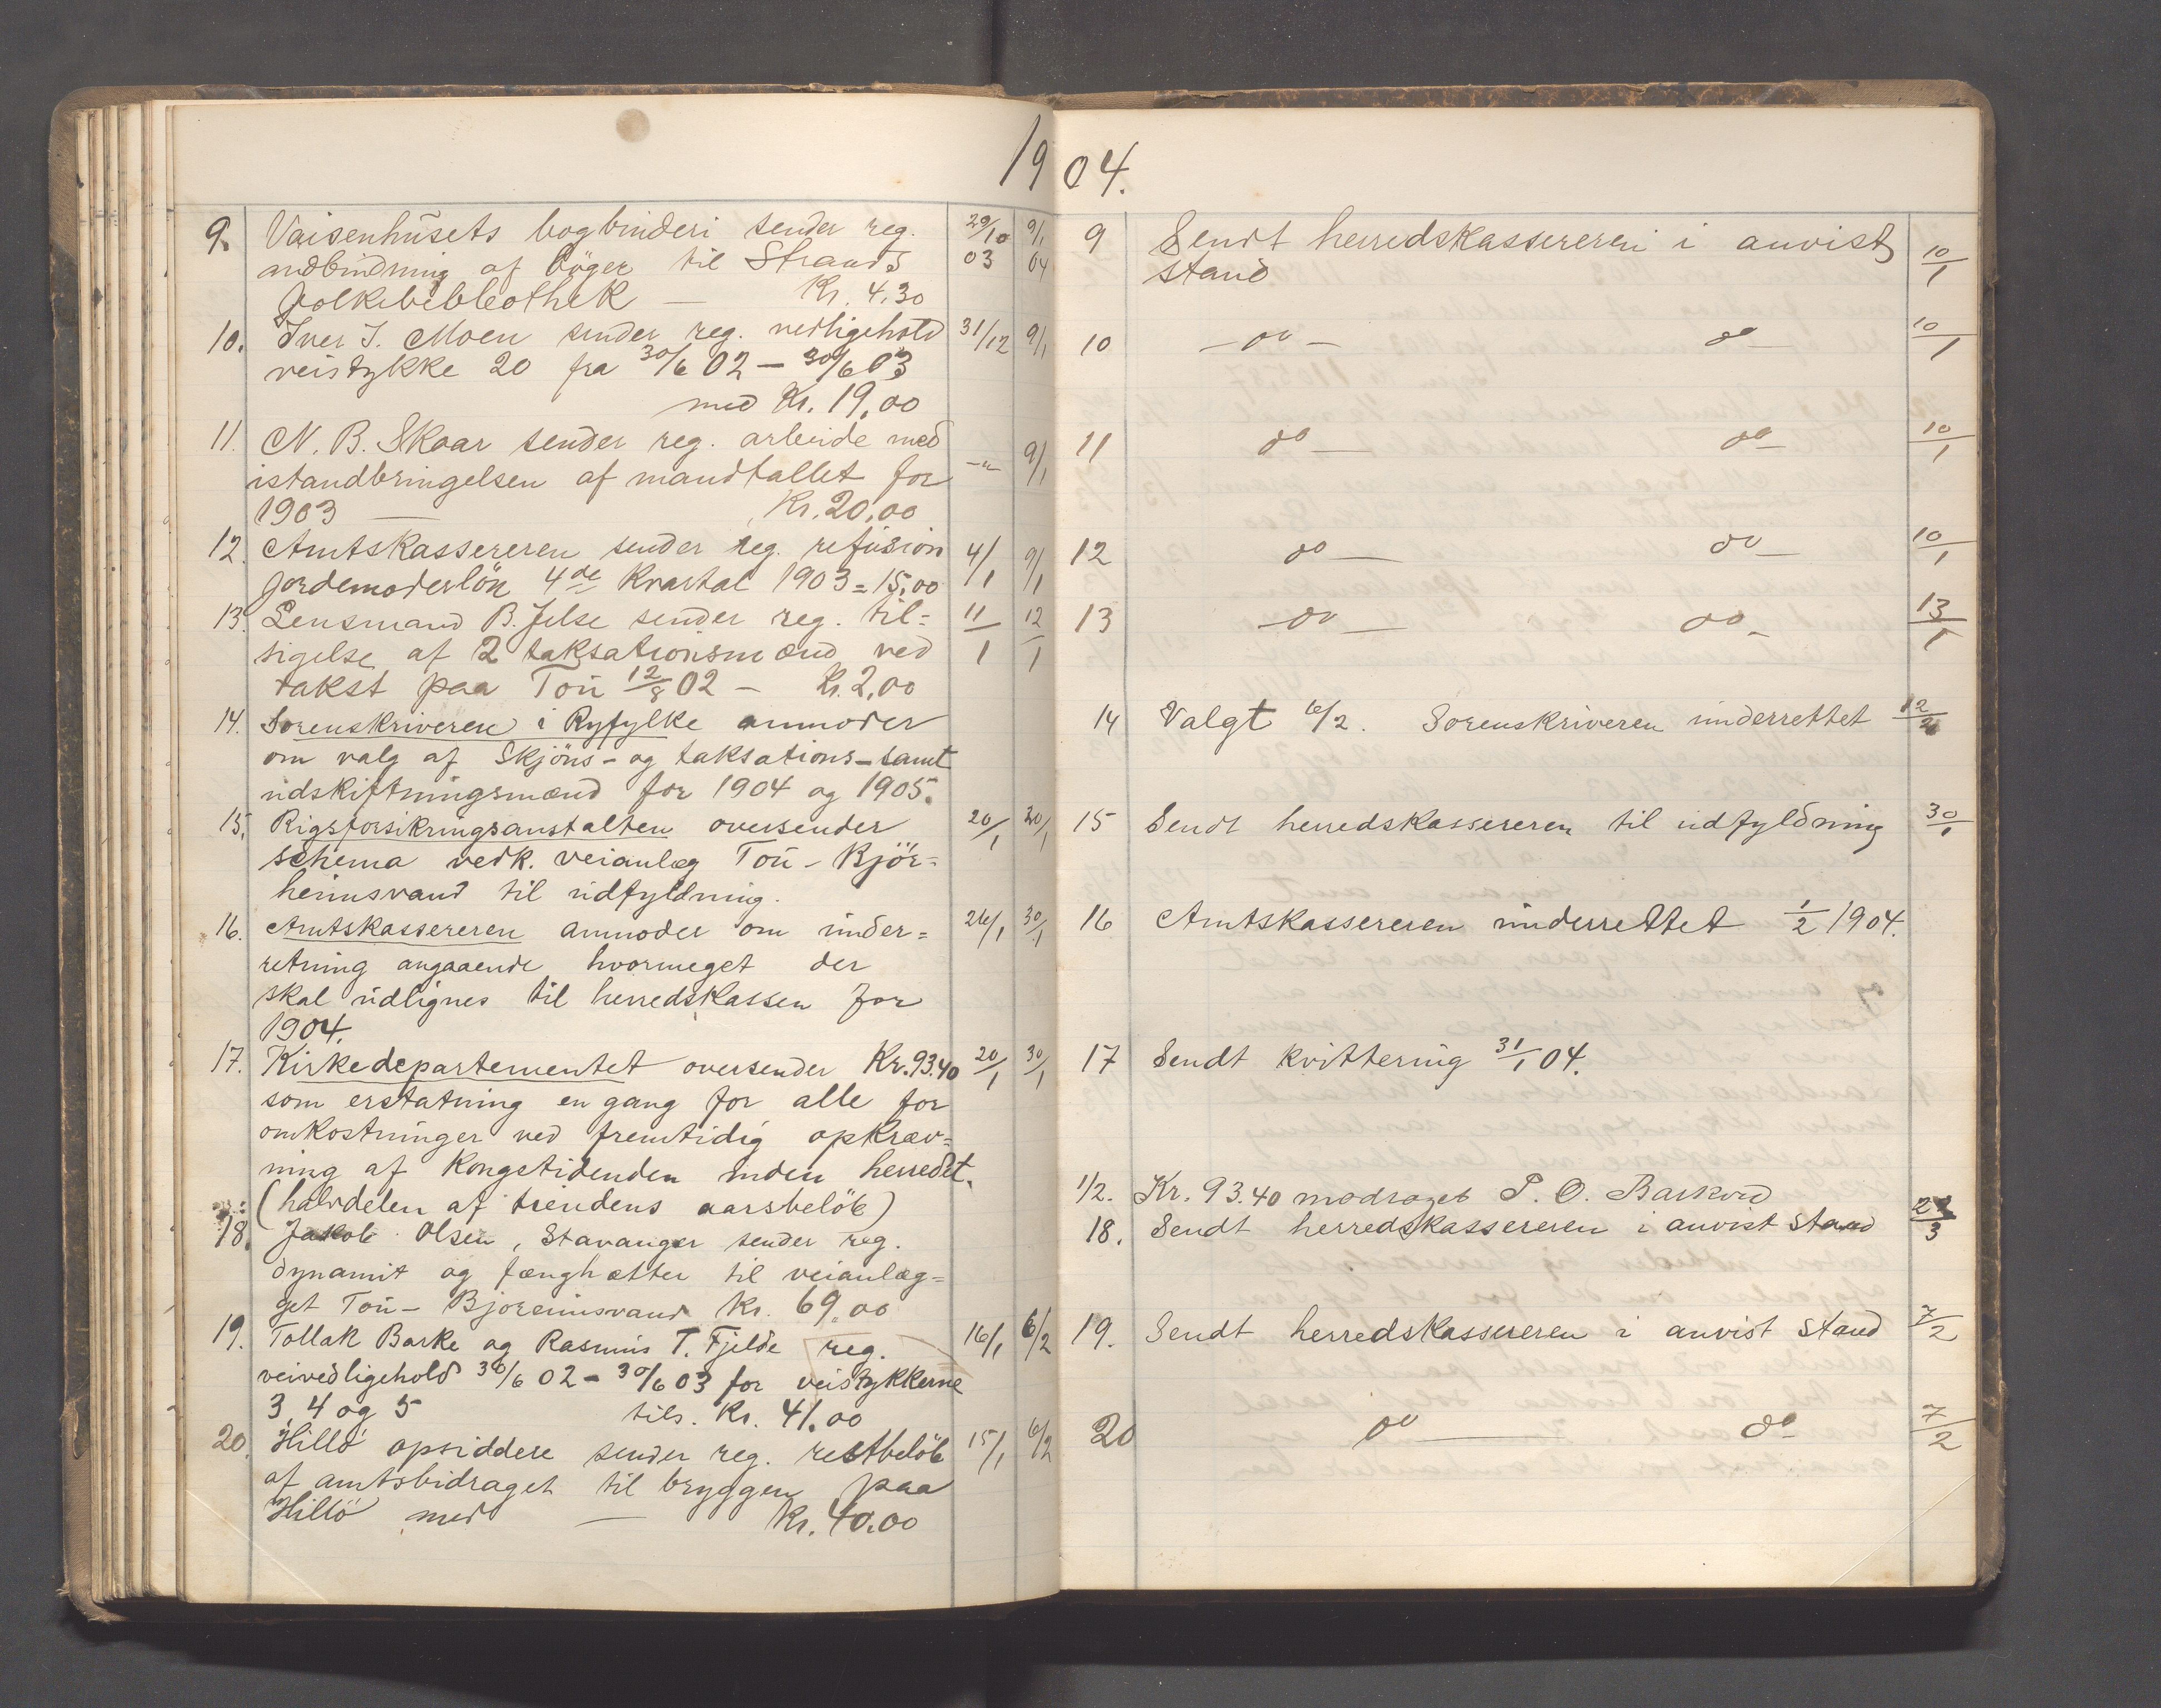 1904.
9. Vaisenhusets bogbinderi sender reg. 29/10 9/1
indbinding af bøger til Strands 03 04
folkebibliothek — Kr. 4.30
10. Iver I. Moen sender reg. vedligehold 31/12 9/1
veistykke 20 fra 30/6 02 – 30/6 03
med Kr. 19,00
11. N. B. Skaar sender reg. arbeide med
istandbringelsen af mandtallet for –"– 9/1
1903 — Kr. 20,00
12. Amtskassereren sender reg. refusion 4/1 9/1
jordemoderløn 4de kvartal 1903 = 15,00
13. Lensmand B. Jelse sender reg. til= 11/1 12/1
sigelse af 2 taksationsmænd ved
takst paa Tou 12/8 02 – Kr. 2,00
14. Sorenskriveren i Ryfylke anmoder
om valg af Skjøns- og taksations- samt
udskiftningsmænd for 1904 og 1905.
15. Rigsforsikringsanstalten oversender 20/1 30/1
schema vedk. veianlæg Tou – Bjør=
heimsvand til udfyldning.
16. Amtskassereren anmoder om under= 26/1 30/1
retning angaaende hvormeget der
skal udlignes til herredskassen for
1904.
17. Kirkedepartementet oversender Kr. 93.40 20/1 30/1
som erstatning en gang for alle for
omkostninger ved fremtidig opkræv=
ning af Kongstidenden inden herredet.
(halvdelen af tiendens aarsbeløb)
18. Jakob Olsen, Stavanger sender reg.
dynamit og fænghætter til veianlæg=
get Tou – Bjoreimsvand Kr. 69,00
19. Tollak Barke og Rasmus T. Fjelde reg. 16/1 6/2
veivedligehold 30/6 02 – 30/6 03 for veistykkerne
3, 4 og 5 tils. Kr. 41.00
20. Hillø opsiddere sender reg. restbeløb 15/1 6/2
af amtsbidraget til bryggen paa
Hillø med — Kr. 40.00
9 Sendt herredskassereren i anvist
stand 10/1
10 – do – do – 10/1
11 do – do – 10/1
12 do – do – 10/1
13 – do – do – 13/1
14 Valgt 6/2. Sorenskriveren underrettet 12/2
15 Sendt herredskassereren til udfyldning 30/1
16 Amtskassereren underrettet 1/2 1904.
17 Sendt kvittering 31/1 04.
1/2. Kr. 93.40 modtaget P. O. Barkved
18. Sendt herredskassereren i anvist stand /3
19. Sendt herredskassereren i anvist stand 7/2
20 do — do 7/2